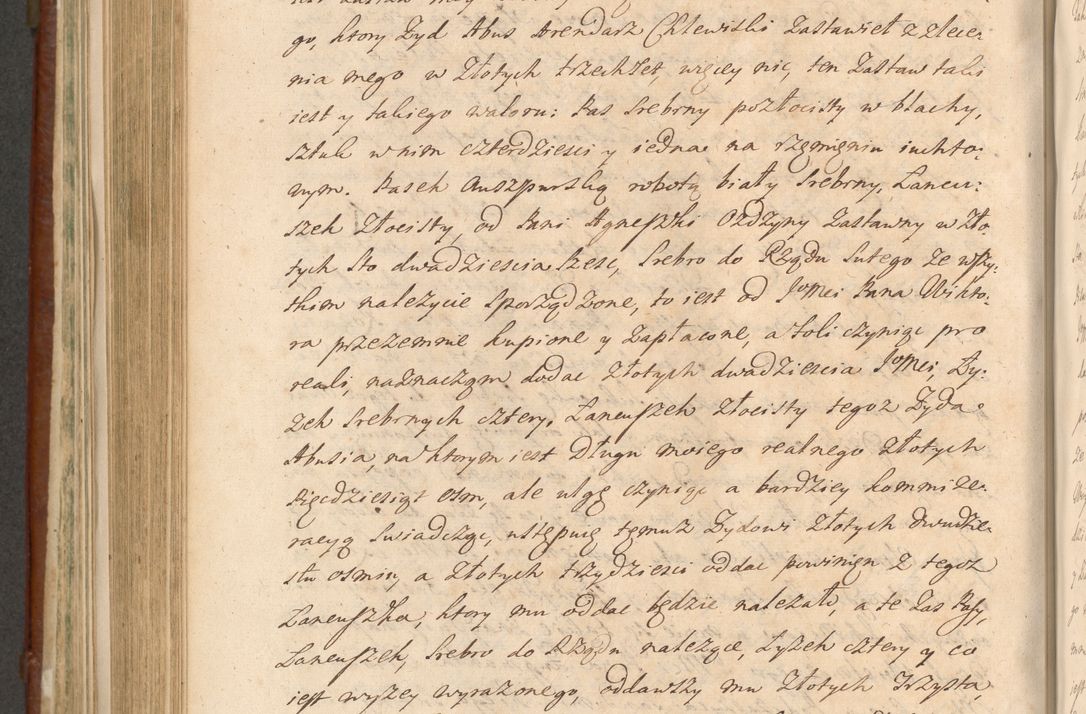 go, ktory Zyd Abus Arendarz Chlewiski Zastawiał z zlece„
nia mego w Złotych trzechset więcey nic, ten Zastaw taki
iest y takiego waloru: Pas Srebrny pozłocisty w blachy,
sztuk w nim czterdziesci y iedna na rzęmięniu iuchto„
wym. Pasek Auszpurską robotą biały Srebrny, Lancu„
szek Złocisty, od Pani Agneszki Ozdzyny Zastawny w Zło„
tych Sto dwadziescia szesc, Srebro do Rzędu Sutego ze wszy„
tkim nalezycie Sporządzone, to iest od Jmci Pana Wikto„
ra przezemnie kupione y Zapłacone, a toli czyniąc pro
reali, naznaczam dodac Złotych dwadziescia Jmci, Ły„
zek Srebrnych cztery, Lancuszek Złocisty tegoz Zyda
Abusia, na ktorym iest Długu moiego realnego Złotych
Pięcdziesiąt Osm, ale ulgę czyniąc a bardziey kommize„
racyą Swiadcząc, ustępuię tęmuz Zydowi Złotych dwudzie„
stu osmiu, a Złotych trzydziesci oddac powinięn z tegoz
Lancuszka, ktory mu oddac będzie nalezało, a te zas Pasy,
Lancuszek, Srebro do Rzędu nalezące, Łyzek cztery y co
iest wyzey wyrazonego, oddawszy mu Złotych Trzysta,